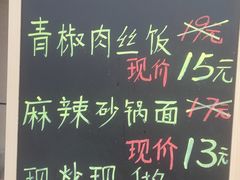 青椒肉丝饭 19元
现价15元
麻辣砂锅面 17元
现价13元
现炒现做